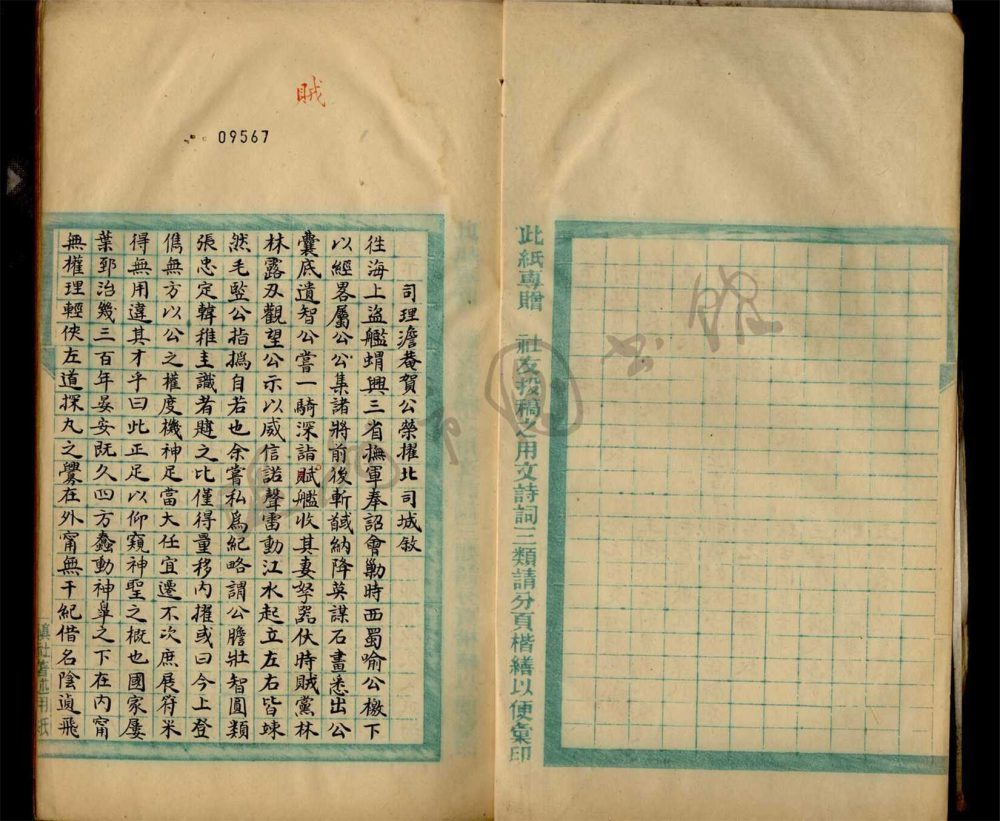 此紙專贈 社友投稿之用文詩詞三類請分頁楷繕以便彙印
賊
09567
司理澹菴賀公榮擢北司城敘
徃海上盜艦蝟興三省撫軍奉詔會勦時西蜀喻公檄下
以經畧屬公公集諸將前後斬馘納降英謀石畫悉出公
囊底遺智公嘗一騎深詣賦艦收其妻孥器仗時賊黨林
林露刃觀望公示以威信諾聲雷動江水起立左右皆竦
然毛監公指撝自若也余嘗私爲紀略謂公膽壯智圓類
張忠定韓稚圭識者韙之比僅得量移內擢或曰今上登
儁無方以公之權度機神足當大任宜遷不次庶展符米
得無用違其才乎曰此正足以仰窺神聖之概也國家屢
葉郅治幾三百年晏安既久四方蠢動神皋之下在內甯
無權理輕俠左道探丸之釁在外甯無干紀借名陰遉飛
滇社著述用紙